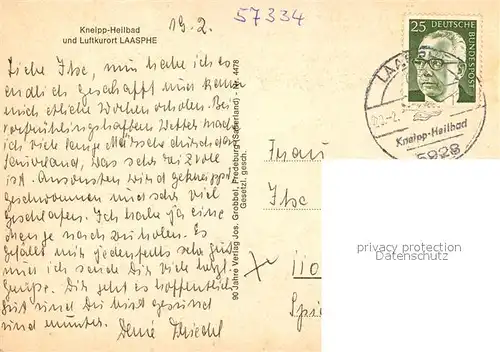 19.2.
57334
Kneipp-Heilbad
und Luftkurort LAASPHE
Liebe Ilse, nun habe ich es
endlich geschafft und kann
mich etliche Wochen erholen. Bei
vorfrühlingshaftem Wetter mache
ich viele lange Märsche durch das
Sauerland, was sehr reizvoll
ist. Ansonsten wird gekneippt
geschwommen und sehr viel
geschlafen. Ich habe ja eine
Menge nachzuholen. Es
gefällt mir jedenfalls sehr gut
und ich sende Dir viele herzl.
Grüße. Dir geht es hoffentlich
gut und Du bist gesund
und munter. Deine
90 Jahre Verlag Jos. Grobbel, Fredeburg (Sauerland) - Nr. 4478
Gesetzl. gesch.
25 DEUTSCHE BUNDESPOST
LAASPHE
Kneipp-Heilbad
5928
Frau
Ilse
privacy protection
Datenschutz